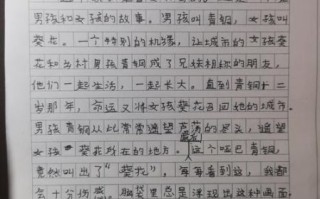 男孩和女孩的故事。男孩叫青铜，女孩叫
葵花。一个特别的机缘，让城市的女孩葵
花和乡村男孩青铜成了兄妹相称的朋友，
他们一起生活，一起长大。直到青铜十二
岁那年，命运又将女孩葵花召回她的城市。
男孩青铜从此常常遥望芦荡的尽头，遥望
女孩葵花所在的地方。这个哑巴青铜，
竟然叫出了“葵花”，每每看到这，我都
会十分伤感，脑袋里总是浮现出这种画面